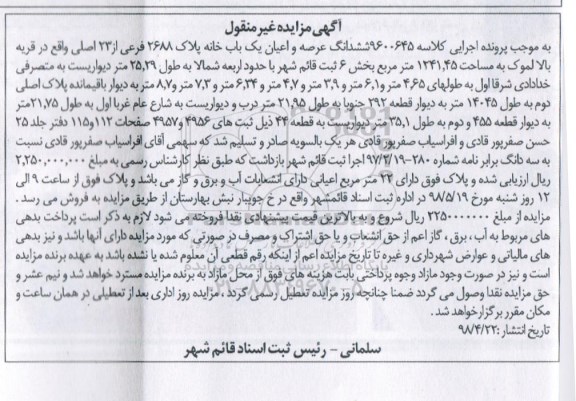 آگهی مزایده غیر منقول
به موجب پرونده اجرایی کلاسه ۹۶۰۰۶۴۵ ششدانگ عرصه و اعیان یک باب خانه پلاک ۲۶۸۸ فرعی از ۲۳ اصلی واقع در قریه
بالا لموک به مساحت ۱۲۴۱,۴۵ متر مربع بخش ۶ ثبت قائم شهر با حدود اربعه شمالا به طول ۲۵,۲۹ متر دیواریست به متصرفی
خدادادی شرقا اول به طولهای ۴,۶۵ متر و ۶,۱ متر و ۳,۹ متر و ۴,۷ متر و ۶,۳۴ متر و ۷,۳ متر و ۸,۷ متر به دیوار باقیمانده پلاک اصلی
دوم به طول ۱۴۰۴۵ متر به دیوار قطعه ۳۹۲ جنوبا به طول ۲۱,۹۵ متر درب و دیواریست به شارع عام غربا اول به طول ۲۱,۷۵ متر
به دیوار قطعه ۴۵۵ و دوم به طول ۳۵,۱ متر دیواریست به قطعه ۴۴ ذیل ثبت های ۴۹۵۶ و ۴۹۵۷ صفحات ۱۱۲ و ۱۱۵ دفتر جلد ۲۵
حسن صفرپور قادی و افراسیاب صفرپور قادی هر یک بالسویه صادر و تسلیم شد که سهمی آقای افراسیاب صفرپور قادی نسبت
به سه دانگ برابر نامه شماره ۲۸۰-۹۷/۲/۱۹ اجرا ثبت قائم شهر بازداشت که طبق نظر کارشناس رسمی به مبلغ ۲,۲۵۰,۰۰۰,۰۰۰
ریال ارزیابی شده و پلاک فوق دارای ۲۲ متر مربع اعیانی دارای انشعابات آب و برق و گاز می باشد و پلاک فوق از ساعت ۹ الی
۱۲ روز شنبه مورخ ۹۸/۵/۱۹ در اداره ثبت اسناد قائمشهر واقع در خ جویبار نبش بهارستان از طریق مزایده به فروش می رسد .
مزایده از مبلغ ۲۲۵۰۰۰۰۰۰۰ ریال شروع و به بالاترین قیمت پیشنهادی نقدا فروخته می شود لازم به ذکر است پرداخت بدهی
های مربوط به آب ، برق ، گاز اعم از حق انشعاب و یا حق اشتراک و مصرف در صورتی که مورد مزایده دارای آنها باشد و نیز بدهی
های مالیاتی و عوارض شهرداری و غیره تا تاریخ مزایده اعم از اینکه رقم قطعی آن معلوم شده یا نشده باشد به عهده برنده مزایده
است و نیز در صورت وجود مازاد وجوه پرداختی بابت هزینه های فوق از محل مازاد به برنده مزایده مسترد خواهد شد و نیم عشر و
حق مزایده نقدا وصول می گردد ضمنا چنانچه روز مزایده تعطیل رسمی گردد ، مزایده روز اداری بعد از تعطیلی در همان ساعت و
مکان مقرر برگزار خواهد شد .
تاریخ انتشار : ۹۸/۴/۲۲
سلمانی - رئیس ثبت اسناد قائم شهر